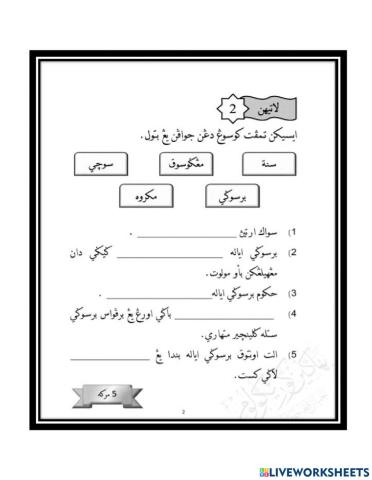 لاتيهن 2
ايسيكن تمڤت كوسوڠ دڠن جواڤن يڠ بتول.
سنة مڠݢوسوق سوچي
برسوݢي مكروه
1) سواك ارتيڽ ____________ .
2) برسوݢي اياله ____________ ݢيݢي دان
مڠهيلڠكن باٴو مولوت.
3) حكوم برسوݢي اياله____________ .
4) ____________ باݢي اورڠ يڠ برڤواس برسوݢي
ستله ݢلينچير متهاري.
5) الت اونتوق برسوݢي اياله بندا يڠ ____________
لاݢي كست.
5 مركه
2
LIVEWORKSHEETS